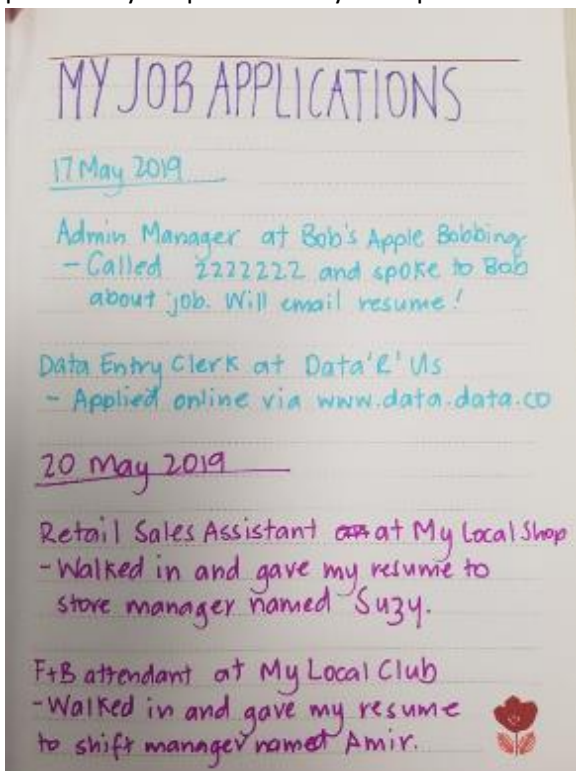 MY JOB APPLICATIONS
17 May 2019
Admin Manager at Bob's Apple Bobbing
- Called 2222222 and spoke to Bob
about job. Will email resume!
Data Entry Clerk at Data'R' Us
- Applied online via www.data.data.co
20 May 2019
Retail Sales Assistant at My Local Shop
- Walked in and gave my resume to
store manager named Suzy.
F+B attendant at My Local Club
- Walked in and gave my resume
to shift manager named Amir.